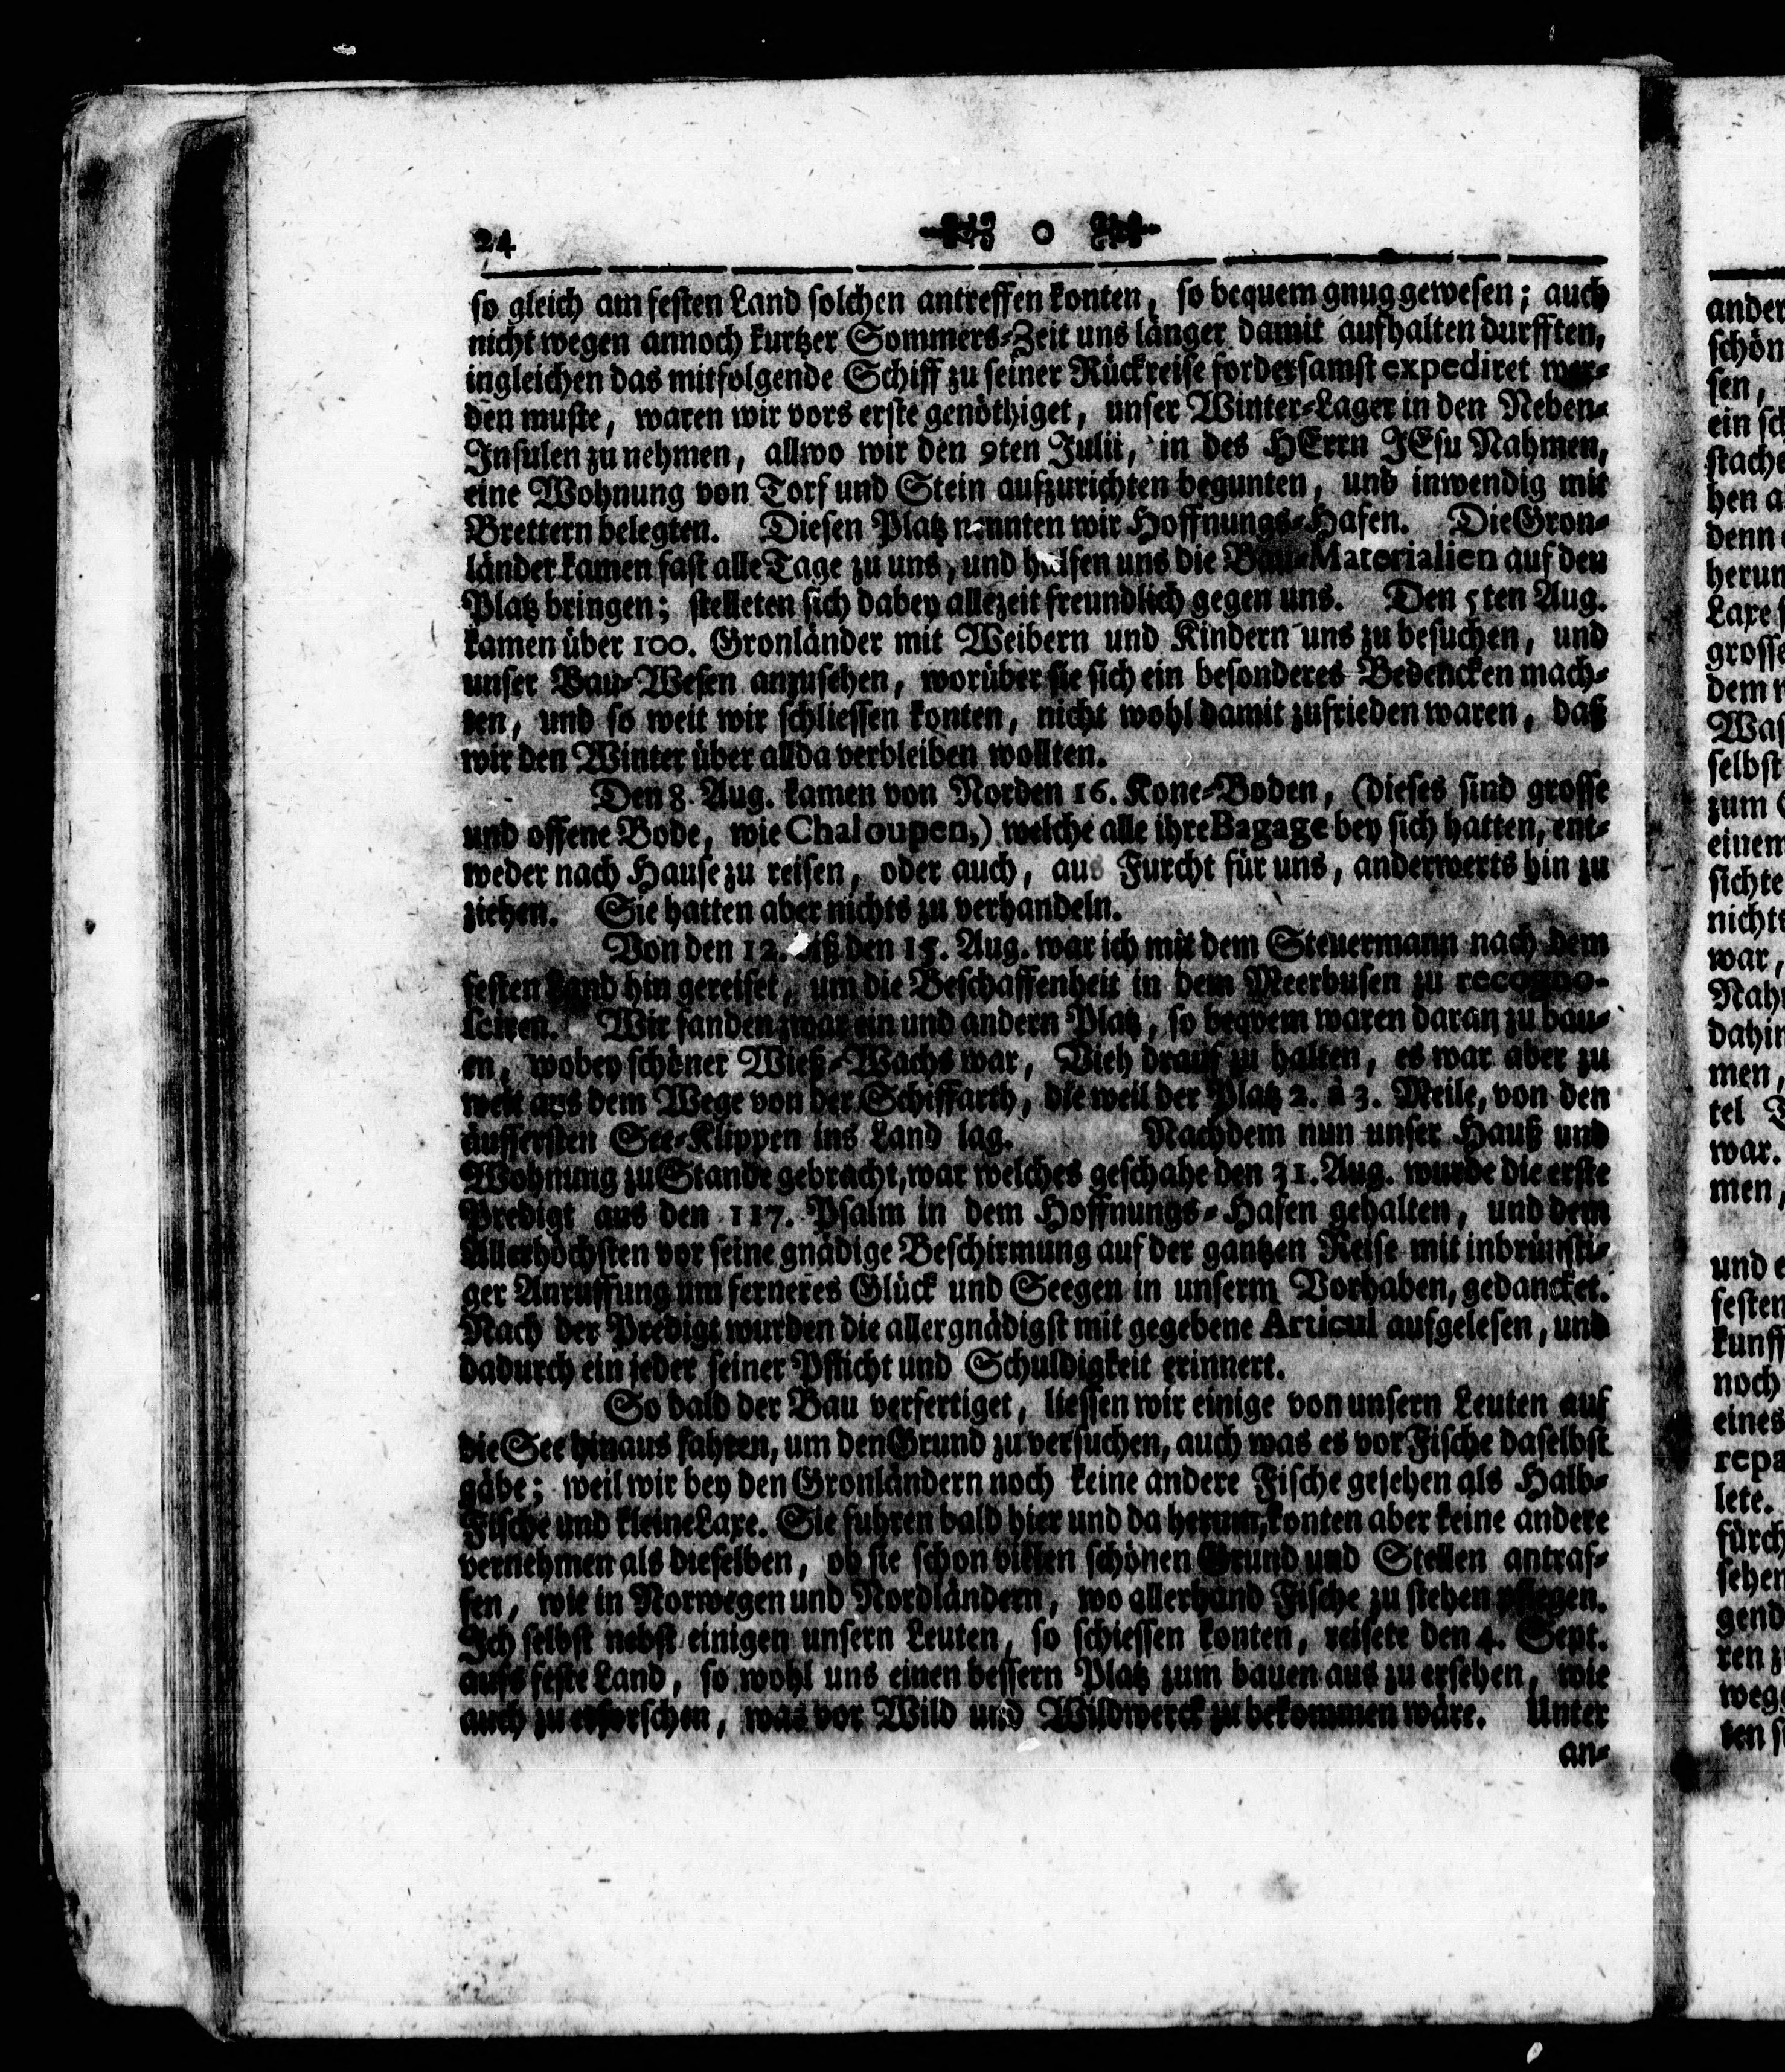 24 o
so gleich am festen Land solchen antreffen konten, so bequem gnug gewesen; auch
nicht wegen annoch kurtzer Sommers-Zeit uns länger damit aufhalten durfften,
ingleichen das mitfolgende Schiff zu seiner Rückreise fordersamst expediret wer-
den muste, waren wir vors erste genöthiget, unser Winter-Lager in den Neben-
Insulen zu nehmen, allwo wir den 9ten Julii, in des HErrn JEsu Nahmen,
eine Wohnung von Torf und Stein aufzurichten begunten, und inwendig mit
Brettern belegten. Diesen Platz nennten wir Hoffnungs-Hafen. Die Gron-
länder kamen fast alle Tage zu uns, und halfen uns die Bau-Materialien auf den
Platz bringen; stelleten sich dabey allezeit freundlich gegen uns. Den 5ten Aug.
kamen über 100. Gronländer mit Weibern und Kindern uns zu besuchen, und
unser Bau-Wesen anzusehen, worüber sie sich ein besonderes Bedencken mach-
ten, und so weit wir schliessen konten, nicht wohl damit zufrieden waren, daß
wir den Winter über allda verbleiben wollten.
Den 8. Aug. kamen von Norden 16. Kone-Boden, (dieses sind grosse
und offene Bode, wie Chaloupen,) welche alle ihre Bagage bey sich hatten, ent-
weder nach Hause zu reisen, oder auch, aus Furcht für uns, anderwerts hin zu
ziehen. Sie hatten aber nichts zu verhandeln.
Von den 12. biß den 15. Aug. war ich mit dem Steuermann nach dem
festen Land hin gereiset, um die Beschaffenheit in dem Meerbusen zu recogno-
sciren. Wir fanden zwar ein und andern Platz, so beqvem waren daran zu bau-
en, wobey schöner Wieß-Wachs war, Vieh drauf zu halten, es war aber zu
weit aus dem Wege von der Schiffarth, dieweil der Platz 2. à 3. Meile, von den
äussersten See-Klippen ins Land lag. Nachdem nun unser Hauß und
Wohnung zu Stande gebracht, war welches geschahe den 31. Aug. wurde die erste
Predigt aus den 117. Psalm in dem Hoffnungs-Hafen gehalten, und dem
Allerhöchsten vor seine gnädige Beschirmung auf der gantzen Reise mit inbrünsti-
ger Anruffung um ferneres Glück und Seegen in unserm Vorhaben, gedancket.
Nach der Predigt wurden die allergnädigst mit gegebene Articul aufgelesen, und
dadurch ein jeder seiner Pflicht und Schuldigkeit erinnert.
So bald der Bau verfertiget, liessen wir einige von unsern Leuten auf
die See hinaus fahren, um den Grund zu versuchen, auch was es vor Fische daselbst
gäbe; weil wir bey den Gronländern noch keine andere Fische gesehen als Halb-
Fische und kleine Laxe. Sie fuhren bald hier und da herum, konten aber keine andere
vernehmen als dieselben, ob sie schon vielen schönen Grund und Stellen antraf-
fen, wie in Norwegen und Nordländern, wo allerhand Fische zu stehen pflegen.
Ich selbst nebst einigen unsern Leuten, so schiessen konten, reisete den 4. Sept.
aufs feste Land, so wohl uns einen bessern Platz zum bauen aus zu ersehen, wie
auch zu erforschen, was vor Wild und Wildwerck zu bekommen wäre. Unter
an-